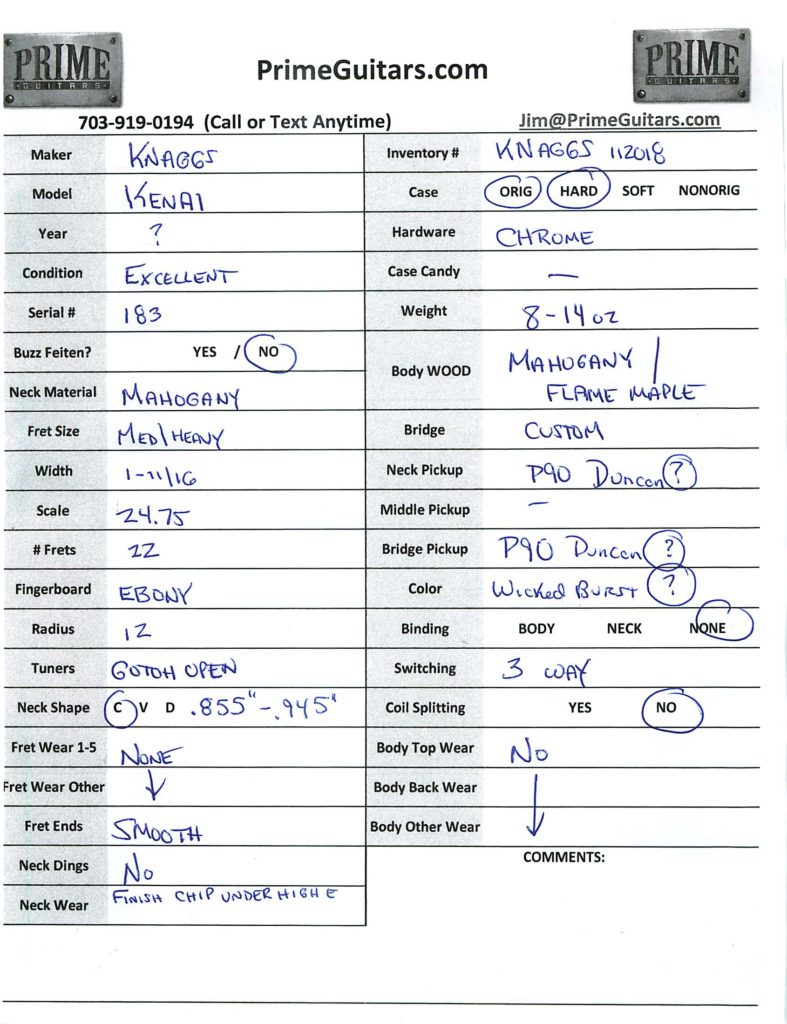 PRIME
GUITARS
PrimeGuitars.com
PRIME
GUITARS
703-919-0194 (Call or Text Anytime)
Jim@PrimeGuitars.com
Maker KNAGGS
Model KENAI
Year ?
Condition EXCELLENT
Serial # 183
Buzz Feiten? YES / NO
Neck Material MAHOGANY
Fret Size MED/HEAVY
Width 1-11/16
Scale 24.75
# Frets 22
Fingerboard EBONY
Radius 12
Tuners GOTOH OPEN
Neck Shape C V D .855"-.945"
Fret Wear 1-5 NONE
Fret Wear Other ↓
Fret Ends SMOOTH
Neck Dings No
Neck Wear FINISH CHIP UNDER HIGH E
Inventory # KNAGGS 112018
Case ORIG HARD SOFT NONORIG
Hardware CHROME
Case Candy —
Weight 8-14 oz
Body WOOD MAHOGANY /
FLAME MAPLE
Bridge CUSTOM
Neck Pickup P90 Duncan ?
Middle Pickup —
Bridge Pickup P90 Duncan ?
Color Wicked BURST ?
Binding BODY NECK NONE
Switching 3 WAY
Coil Splitting YES NO
Body Top Wear No
Body Back Wear
Body Other Wear ↓
COMMENTS: